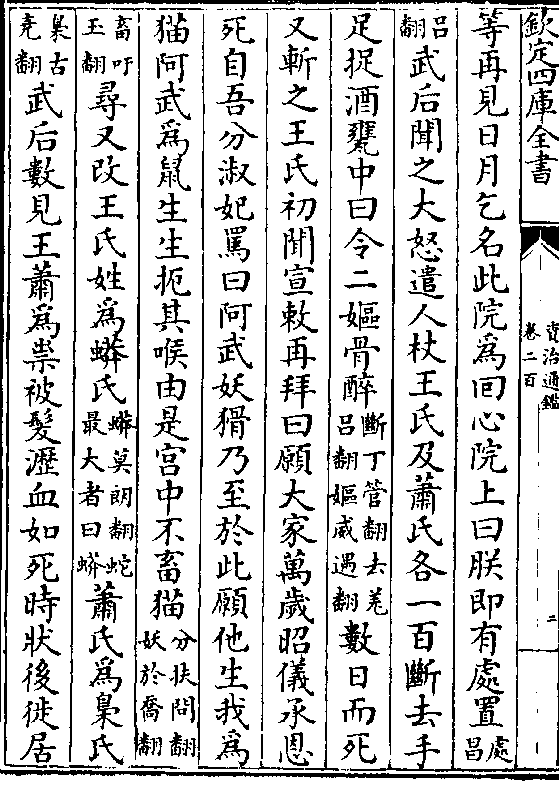 欽定四庫全書
資治通鑑
卷二百
二
等再見日月乞名此院為回心院上曰朕即有處置處昌
呂翻武后聞之大怒遣人杖王氏及蕭氏各一百斷去手
足捉酒甕中曰令二嫗骨醉斷丁管翻去羌呂翻嫗威遇翻數日而死
又斬之王氏初聞宣敕再拜曰願大家萬歲昭儀承恩
死自吾分淑妃罵曰阿武妖猾乃至於此願他生我為
猫阿武為鼠生生扼其喉由是宮中不畜猫分扶問翻妖於喬翻
畜吁玉翻尋又改王氏姓為蟒氏蟒莫朗翻蛇最大者曰蟒蕭氏為梟氏
梟古堯翻武后數見王蕭為祟被髮瀝血如死時狀後徙居